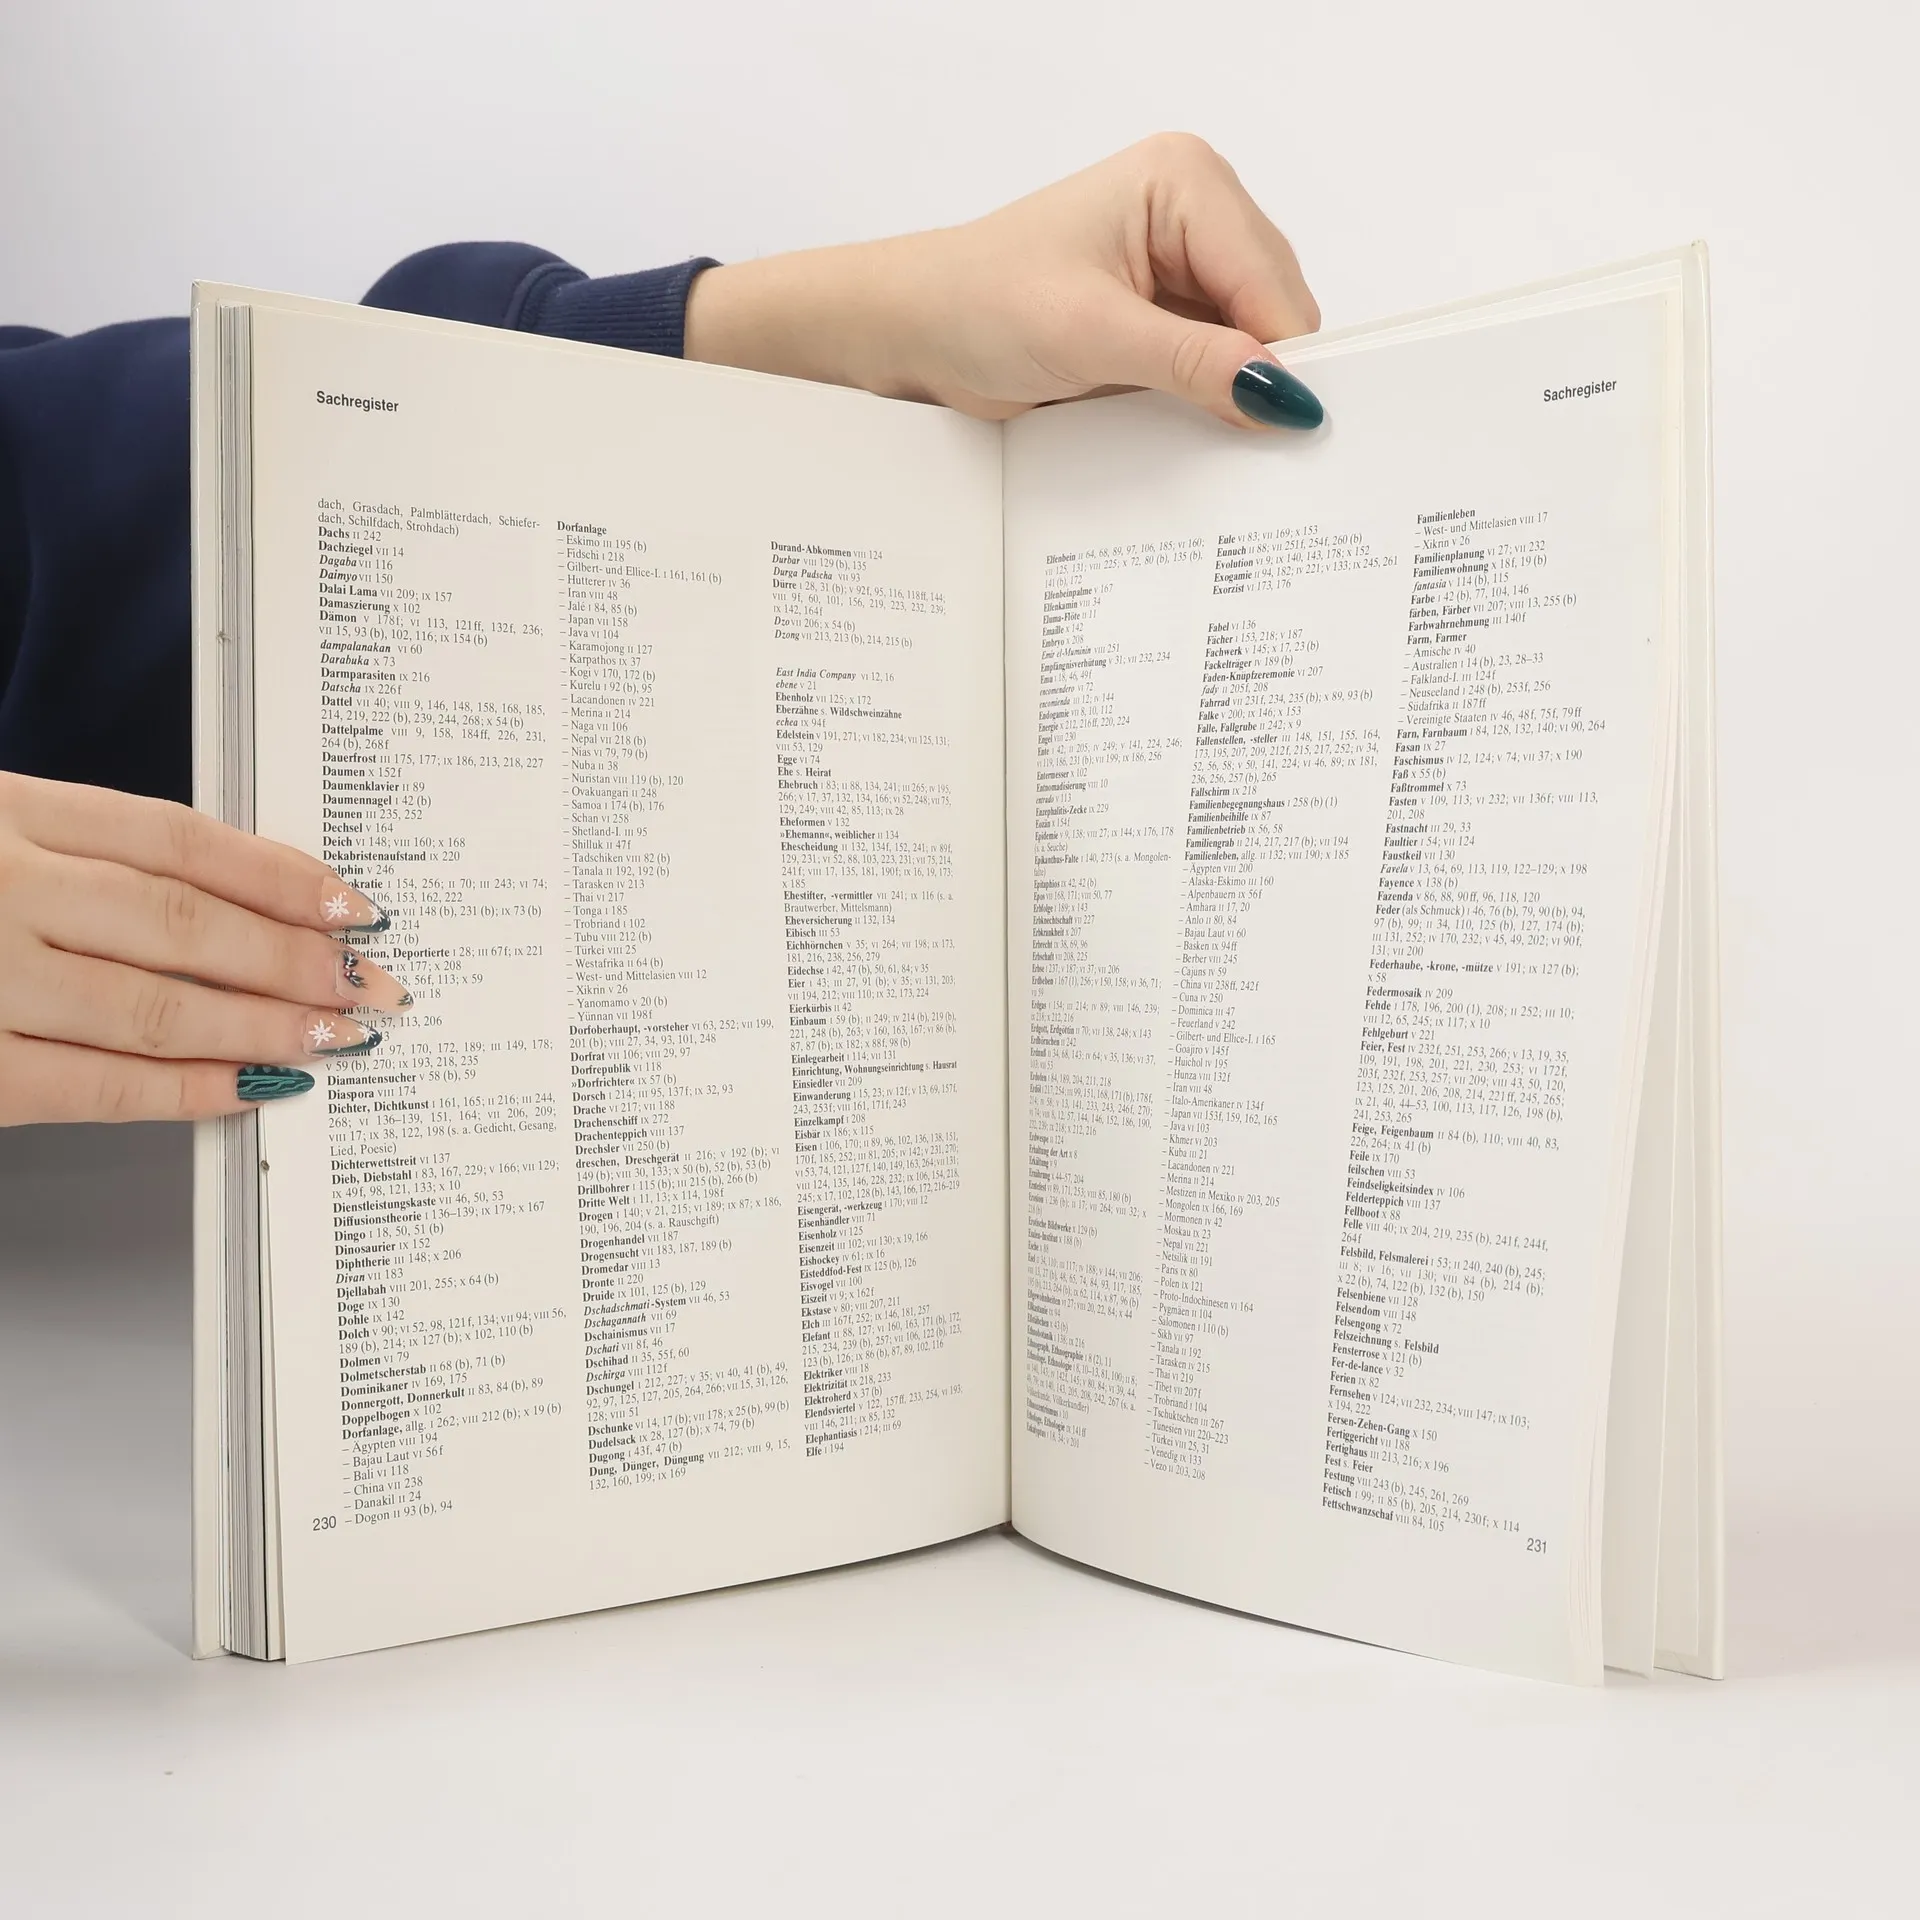 Sachregister
dach, Grasdach, Palmblätterdach, Schiefer-
dach, Schilfdach, Strohdach)
Dachs II 242
Dachziegel VII 14
Dagaba VII 116
Daimyo VII 150
Dalai Lama VII 209; IX 157
Damaszierung X 102
Dämon V 178f; VI 113, 121ff, 132f, 236;
VII 15, 93 (b), 102, 116; IX 154 (b)
dampalanakan VI 60
Darabuka X 73
Darmparasiten IX 216
Datscha IX 226f
Dattel VII 40; VIII 9, 146, 148, 158, 168, 185,
214, 219, 222 (b), 239, 244, 268; X 54 (b)
Dattelpalme VIII 9, 158, 184ff, 226, 231,
264 (b), 268f
Dauerfrost III 175, 177; IX 186, 213, 218, 227
Daumen X 152f
Daumenklavier II 89
Daumennagel I 42 (b)
Daunen III 235, 252
Dechsel V 164
Deich VI 148; VIII 160; X 168
Dekabristenaufstand IX 220
elphin V 246
okratie I 154, 256; II 70; III 243; VI 74;
106, 153, 162, 222
ion VII 148 (b), 231 (b); IX 73 (b)
I 214
enkmal X 127 (b)
ation, Deportierte I 28; III 67f; IX 221
en IX 177; X 208
28, 56f, 113; X 59
VII 18
au VII
VIII 57, 113, 206
II 97, 170, 172, 189; III 149, 178;
V 59 (b), 270; IX 193, 218, 235
Diamantensucher V 58 (b), 59
Diaspora VIII 174
Dichter, Dichtkunst I 161, 165; II 216; III 244,
268; VI 136–139, 151, 164; VII 206, 209;
VIII 17; IX 38, 122, 198 (s. a. Gedicht, Gesang,
Lied, Poesie)
Dichterwettstreit VI 137
Dieb, Diebstahl I 83, 167, 229; V 166; VII 129;
IX 49f, 98, 121, 133; X 10
Dienstleistungskaste VII 46, 50, 53
Diffusionstheorie I 136–139; IX 179; X 167
Dingo I 18, 50, 51 (b)
Dinosaurier IX 152
Diphtherie III 148; X 206
Divan VII 183
Djellabah VIII 201, 255; X 64 (b)
Doge IX 130
Dohle IX 142
Dolch V 90; VI 52, 98, 121f, 134; VII 94; VIII 56,
189 (b), 214; IX 127 (b); X 102, 110 (b)
Dolmen VI 79
Dolmetscherstab II 68 (b), 71 (b)
Dominikaner IV 169, 175
Donnergott, Donnerkult II 83, 84 (b), 89
Doppelbogen X 102
Dorfanlage, allg. I 262; VIII 212 (b); X 19 (b)
– Ägypten VIII 194
– Bajau Laut VI 56f
– Bali VI 118
– China VII 238
– Danakil II 24
– Dogon II 93 (b), 94
230
Dorfanlage
– Eskimo III 195 (b)
– Fidschi I 218
– Gilbert- und Ellice-I. I 161, 161 (b)
– Hutterer IV 36
– Iran VIII 48
– Jalé I 84, 85 (b)
– Japan VII 158
– Java VI 104
– Karamojong II 127
– Karpathos IX 37
– Kogi V 170, 172 (b)
– Kurelu I 92 (b), 95
– Lacandonen IV 221
– Merina II 214
– Naga VII 106
– Nepal VII 218 (b)
– Nias VI 79, 79 (b)
– Nuba II 38
– Nuristan VIII 119 (b), 120
– Ovakuangari II 248
– Samoa I 174 (b), 176
– Schan VI 258
– Shetland-I. III 95
– Shilluk II 47f
– Tadschiken VIII 82 (b)
– Tanala II 192, 192 (b)
– Tarasken IV 213
– Thai VI 217
– Tonga I 185
– Trobriand I 102
– Tubu VIII 212 (b)
– Türkei VIII 25
– Westafrika II 64 (b)
– West- und Mittelasien VIII 12
– Xikrin V 26
– Yanomamo V 20 (b)
– Yünnan VII 198f
Dorfoberhaupt, -vorsteher VI 63, 252; VII 199,
201 (b); VIII 27, 34, 93, 101, 248
Dorfrat VII 106; VIII 29, 97
Dorfrepublik VI 118
»Dorfrichter« IX 57 (b)
Dorsch I 214; III 95, 137f; IX 32, 93
Drache VI 217; VII 188
Drachenschiff IX 272
Drachenteppich VIII 137
Drechsler VII 250 (b)
dreschen, Dreschgerät II 216; V 192 (b); VI
149 (b); VIII 30, 133; X 50 (b), 52 (b), 53 (b)
Drillbohrer I 115 (b); III 215 (b), 266 (b)
Dritte Welt I 11, 13; X 114, 198f
Drogen I 140; V 21, 215; VI 189; IX 87; X 186,
190, 196, 204 (s. a. Rauschgift)
Drogenhandel VII 187
Drogensucht VII 183, 187, 189 (b)
Dromedar VIII 13
Dronte II 220
Druide IX 101, 125 (b), 129
Dschadschmati-System VII 46, 53
Dschagannath VII 69
Dschainismus VII 17
Dschati VII 8f, 46
Dschihad II 35, 55f, 60
Dschirga VIII 112f
Dschungel I 212, 227; V 35; VI 40, 41 (b), 49,
92, 97, 125, 127, 205, 264, 266; VII 15, 31, 126,
128; VIII 51
Dschunke VI 14, 17 (b); VII 178; X 25 (b), 99 (b)
Dudelsack IX 28, 127 (b); X 74, 79 (b)
Dugong I 43f, 47 (b)
Dung, Dünger, Düngung VII 212; VIII 9, 15,
132, 160, 199; IX 169
Durand-Abkommen VIII 124
Durbar VIII 129 (b), 135
Durga Pudscha VII 93
Dürre I 28, 31 (b); V 92f, 95, 116, 118ff, 144;
VIII 9f, 60, 101, 156, 219, 223, 232, 239;
IX 142, 164f
Dzo VII 206; X 54 (b)
Dzong VII 213, 213 (b), 214, 215 (b)
East India Company VI 12, 16
ebene V 21
Ebenholz VII 125; X 172
Eberzähne s. Wildschweinzähne
echea IX 94f
Edelstein V 191, 271; VI 182, 234; VII 125, 131;
VIII 53, 129
Egge VI 74
Ehe s. Heirat
Ehebruch I 83; II 88, 134, 241; III 265; IV 195,
266; V 17, 37, 132, 134, 166; VI 52, 248; VII 75,
129, 249; VIII 42, 85, 113; IX 28
Eheformen V 132
»Ehemann«, weiblicher II 134
Ehescheidung II 132, 134f, 152, 241; IV 89f,
129, 231; VI 52, 88, 103, 223, 231; VII 75, 214,
241f; VIII 17, 135, 181, 190f; IX 16, 19, 173;
X 185
Ehestifter, -vermittler VII 241; IX 116 (s. a.
Brautwerber, Mittelsmann)
Eheversicherung II 132, 134
Eibisch III 53
Eichhörnchen V 35; VI 264; VII 198; IX 173,
181, 216, 238, 256, 279
Eidechse I 42, 47 (b), 50, 61, 84; V 35
Eier I 43; III 27, 91 (b); V 35; VI 131, 203;
VII 194, 212; VIII 110; IX 32, 173, 224
Eierkürbis II 42
Einbaum I 59 (b); II 249; IV 214 (b), 219 (b),
221, 248 (b), 263; V 160, 163, 167; VI 86 (b),
87, 87 (b); IX 182; X 88f, 98 (b)
Einlegearbeit I 114; VII 131
Einrichtung, Wohnungseinrichtung s. Hausrat
Einsiedler VII 209
Einwanderung I 15, 23; IV 12f; V 13, 69, 157f,
243, 253f; VIII 161, 171f, 243
Einzelkampf I 208
Eisbär IX 186; X 115
Eisen I 106, 170; II 89, 96, 102, 136, 138, 151,
170f, 185, 252; III 81, 205; IV 142; V 231, 270;
VI 53, 74, 121, 127f, 140, 149, 163, 264; VII 131;
VIII 124, 135, 146, 228, 232; IX 106, 154, 218,
245; X 17, 102, 128 (b), 143, 166, 172, 216–219
Eisengerät, -werkzeug I 170; VIII 12
Eisenhändler VIII 71
Eisenholz VI 125
Eisenzeit III 102; VII 130; X 19, 166
Eishockey IV 61; IX 16
Eisteddfod-Fest IX 125 (b), 126
Eisvogel VII 100
Eiszeit VI 9; X 162f
Ekstase V 80; VIII 207, 211
Elch III 167f, 252; IX 146, 181, 257
Elefant II 88, 127; VI 160, 163, 171 (b), 172,
215, 234, 239 (b), 257; VII 106, 122 (b), 123,
123 (b), 126; IX 86 (b), 87, 89, 102, 116
Elektriker VIII 18
Elektrizität IX 218, 233
Elektroherd X 37 (b)
Elendsviertel V 122, 157ff, 233, 254; VI 193;
VIII 146, 211; IX 85, 132
Elephantiasis I 214; III 69
Elfe I 194
Sachregister
Elfenbein II 64, 68, 89, 97, 106, 185; VI 160;
VII 125, 131; VIII 225; X 72, 80 (b), 135 (b),
141 (b), 172
Elfenbeinpalme V 167
Elfenkamin VIII 34
Eluma-Flöte II 11
Emaille X 142
Embryo X 208
Emir el-Muminin VIII 251
Empfängnisverhütung V 31; VII 232, 234
Emu I 18, 46, 49f
encomendero VI 72
encomienda III 12; IV 144
Endogamie VII 8, 10, 112
Energie X 212, 216ff, 220, 224
Engel VIII 230
Ente I 42; II 205; IV 249; V 141, 224, 246;
VI 119, 186, 231 (b); VII 199; IX 186, 256
Entermesser X 102
Entnomadisierung VIII 10
entrado V 113
Enzephalitis-Zecke IX 229
Eozän X 154f
Epidemie V 9, 138; VIII 27; IX 144; X 176, 178
(s. a. Seuche)
Epikanthus-Falte I 140, 273 (s. a. Mongolen-
falte)
Epitaphios IX 42, 42 (b)
Epos VII 168, 171; VIII 50, 77
Erbfolge I 189; X 143
Erbknechtschaft VII 227
Erbkrankheit X 207
Erbrecht IX 38, 69, 96
Erbschaft VII 208, 225
Erbse I 237; V 187; VI 37; VII 206
Erdbeben I 167 (1), 256; V 150, 158; VI 36, 71;
VII 59
Erdgas I 154; III 214; IV 89; VIII 146, 239;
IX 218; X 212, 216
Erdgott, Erdgöttin II 70; VII 138, 248; X 143
Erdhörnchen II 242
Erdnuß II 34, 68, 143; IV 64; V 35, 136; VI 37,
103; VII 55
Erdofen I 84, 189, 204, 211, 218
Erdwespe II 124
Erhaltung der Art X 8
Erkältung V 9
Ernährung X 44–57, 204
Erntefest VI 89, 171, 253; VIII 85, 180 (b)
Erotische Bildwerke X 129 (b)
Esche X 88
Ethnobotanik I 138; IX 216
Ethnozentrismus I 10
Ethologe, Ethologie IX 141ff
Eukalyptus I 18, 34; V 201
Eule VI 83; VII 169; X 153
Eunuch II 88; VII 251f, 254f, 260 (b)
Evolution VI 9; IX 140, 143, 178; X 152
Exogamie II 94, 182; IV 221; V 133; IX 245, 261
Exorzist VI 173, 176
Fabel VI 136
Fächer I 153, 218; V 187
Fachwerk V 145; X 17, 23 (b)
Fackelträger IV 189 (b)
Faden-Knüpfzeremonie VI 207
fady II 205f, 208
Fahrrad VII 231f, 234, 235 (b); X 89, 93 (b)
Falke V 200; IX 146; X 153
Falle, Fallgrube II 242; X 9
Fallenstellen, -steller III 148, 151, 155, 164,
173, 195, 207, 209, 212f, 215, 217, 252; IV 34,
52, 56, 58; V 50, 141, 224; VI 46, 89; IX 181,
236, 256, 257 (b), 265
Fallschirm IX 218
Familienbegegnungshaus I 258 (b) (1)
Familienbeihilfe IX 87
Familienbetrieb IX 56, 58
Familiengrab II 214, 217, 217 (b); VII 194
Familienleben, allg. II 132; VIII 190; X 185
– Ägypten VIII 200
– Alaska-Eskimo III 160
– Alpenbauern IX 56f
– Amhara II 17, 20
– Anlo II 80, 84
– Bajau Laut VI 60
– Basken IX 94ff
– Berber VIII 245
– Cajuns IV 59
– China VII 238ff, 242f
– Cuna IV 250
– Dominica III 47
– Feuerland V 242
– Gilbert- und Ellice-I. I 165
– Goajiro V 145f
– Huichol IV 195
– Hunza VIII 132f
– Iran VIII 48
– Italo-Amerikaner IV 134f
– Japan VII 153f, 159, 162, 165
– Java VI 103
– Khmer VI 203
– Kuba III 21
– Lacandonen IV 221
– Merina II 214
– Mestizen in Mexiko IV 203, 205
– Mongolen IX 166, 169
– Mormonen IV 42
– Moskau IX 23
– Nepal VII 221
– Netsilik III 191
– Paris IX 80
– Polen IX 121
– Proto-Indochinesen VI 164
– Pygmäen II 104
– Salomonen I 110 (b)
– Sikh VII 97
– Tanala II 192
– Tarasken IV 215
– Thai VI 219
– Tibet VII 207f
– Trobriand I 104
– Tschuktschen III 267
– Tunesien VIII 220–223
– Türkei VIII 25, 31
– Venedig IX 133
– Vezo II 203, 208
Familienleben
– West- und Mittelasien VIII 17
– Xikrin V 26
Familienplanung VI 27; VII 232
Familienwohnung X 18f, 19 (b)
fantasia V 114 (b), 115
Farbe I 42 (b), 77, 104, 146
färben, Färber VII 207; VIII 13, 255 (b)
Farbwahrnehmung III 140f
Farm, Farmer
– Amische IV 40
– Australien I 14 (b), 23, 28–33
– Falkland-I. III 124f
– Neuseeland I 248 (b), 253f, 256
– Südafrika II 187ff
– Vereinigte Staaten IV 46, 48f, 75f, 79ff
Farn, Farnbaum I 84, 128, 132, 140; VI 90, 264
Fasan IX 27
Faschismus IV 12, 124; V 74; VII 37; X 190
Faß X 55 (b)
Faßtrommel X 73
Fasten V 109, 113; VI 232; VII 136f; VIII 113,
201, 208
Fastnacht III 29, 33
Faultier I 54; VII 124
Faustkeil VII 130
Favela V 13, 64, 69, 113, 119, 122–129; X 198
Fayence X 138 (b)
Fazenda V 86, 88, 90ff, 96, 118, 120
Feder (als Schmuck) I 46, 76 (b), 79, 90 (b), 94,
97 (b), 99; II 34, 110, 125 (b), 127, 174 (b);
III 131, 252; IV 170, 232; V 45, 49, 202; VI 90f,
131; VII 200
Federhaube, -krone, -mütze V 191; IX 127 (b);
X 58
Federmosaik IV 209
Fehde I 178, 196, 200 (1), 208; II 252; III 10;
VIII 12, 65, 245; IX 117; X 10
Fehlgeburt V 221
Feier, Fest IV 232f, 251, 253, 266; V 13, 19, 35,
109, 191, 198, 201, 221, 230, 253; VI 172f,
203f, 232f, 253, 257; VII 209; VIII 43, 50, 120,
123, 125, 201, 206, 208, 214, 221ff, 245, 265;
IX 21, 40, 44–53, 100, 113, 117, 126, 198 (b),
241, 253, 265
Feige, Feigenbaum II 84 (b), 110; VIII 40, 83,
226, 264; IX 41 (b)
Feile IX 170
feilschen VIII 53
Feindseligkeitsindex IV 106
Felderteppich VIII 137
Fellboot X 88
Felle VIII 40; IX 204, 219, 235 (b), 241f, 244f,
264f
Felsbild, Felsmalerei I 53; II 240, 240 (b), 245;
III 8; IV 16; VII 130; VIII 84 (b), 214 (b);
X 22 (b), 74, 122 (b), 132 (b), 150
Felsenbiene VII 128
Felsendom VIII 148
Felsengong X 72
Felszeichnung s. Felsbild
Fensterrose X 121 (b)
Fer-de-lance V 32
Ferien IX 82
Fernsehen V 124; VII 232, 234; VIII 147; IX 103;
X 194, 222
Fersen-Zehen-Gang X 150
Fertiggericht VII 188
Fertighaus III 213, 216; X 196
Fest s. Feier
Festung VIII 243 (b), 245, 261, 269
Fetisch I 99; II 85 (b), 205, 214, 230f; X 114
Fettschwanzschaf VIII 84, 105
231